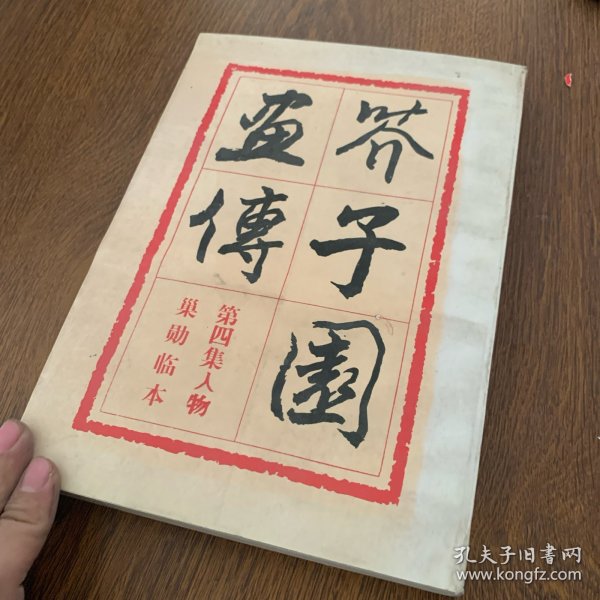 芥子園
畫傳
第四集人物
巢勋临本
孔夫子旧書网
www.kongfz.com